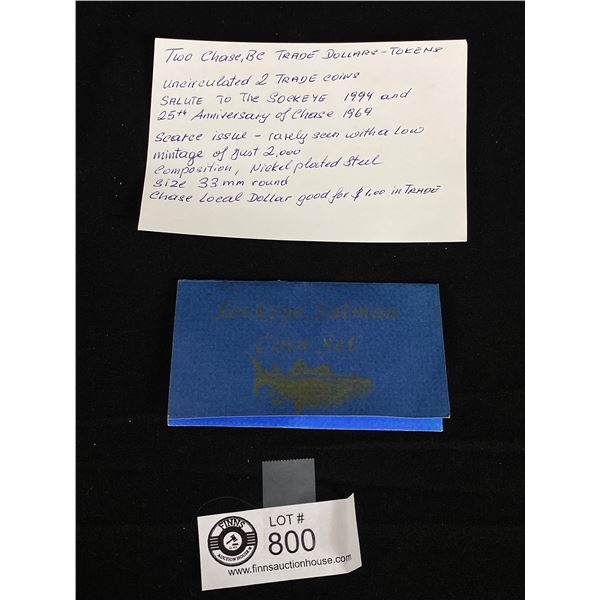 Two Chase, BC Trade Dollars - Tokens
Uncirculated 2 Trade coins
Salute To The Sockeye 1994 and
25th Anniversary of Chase 1969
Scarce issue - rarely seen with a low
mintage of just 2,000
Composition, Nickel plated Steel
Size 33mm round
Chase Local Dollar good for $1.00 in Trade
Sockeye Salmon
Coin Set
FINNS
AUCTION HOUSE
LOT #
800
www.finnsauctionhouse.com